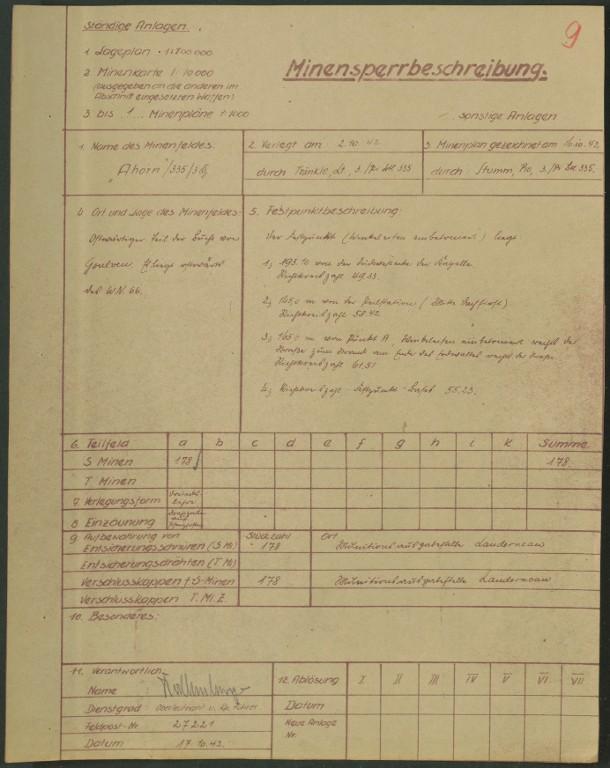 9
Ständige Anlagen.
1. Lageplan 1:100 000
2. Minenkarte 1:10 000
(ausgegeben an die anderen im
Abschnitt eingesetzten Waffen)
3. bis 1 ... Minenpläne 1:1000
Minensperrbeschreibung.
sonstige Anlagen
1. Name des Minenfeldes:
Ahorn /335/3
2. Verlegt am 2.10.42
durch Tränkle, Lt., 3./Pi. Btl. 335
3. Minenplan gezeichnet am 10.10.42.
durch: Stumm, Pio, 3./Pi. Btl. 335.
4. Ort und Lage des Minenfeldes:
Ostwärtiger Teil der Bucht von
Goulven. Er liegt ostwärts
des W.N. 66.
5. Festpunktbeschreibung:
Der Festpunkt (Winkeleisen einbetoniert) liegt
1; 193.10 von der Südwestecke der Kapelle
Richtkreiszahl 49.33.
2; 165,0 m von der
Richtkreiszahl 58.42
3; 165.0 m von Punkt A, Winkeleisen einbetoniert
Straße zum Strand am Ende des
Richtkreiszahl 61.51
4; Richtkreiszahl Festpunkt 55.23.
6. Teilfeld a b c d e f g h i k Summe
S Minen 178 178
T Minen
7. Verlegungsform
8. Einzäunung
9. Aufbewahrung von Stückzahl Ort
Entsicherungsschnüren (S Mi) 178 Munitionsausgabestelle Landerneau
Entsicherungsdrähten (T. Mi.)
Verschlusskappen f. S-Minen 178 Munitionsausgabestelle Landerneau
Verschlusskappen T. Mi. Z.
10. Besonderes:
11. Verantwortlich
Name
Dienstgrad Oberleutnant u. Kp. Führer
Feldpost-Nr. 27221
Datum 17.10.42.
12. Ablösung I II III IV V VI VII
Datum
Neue Anlage
Nr.